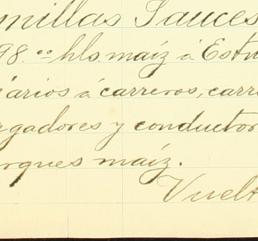 millas Sauces
98.oo hls maiz á Estn
iarios á carreros, carr
rgadores y conductor
arques maiz.
Vuelt